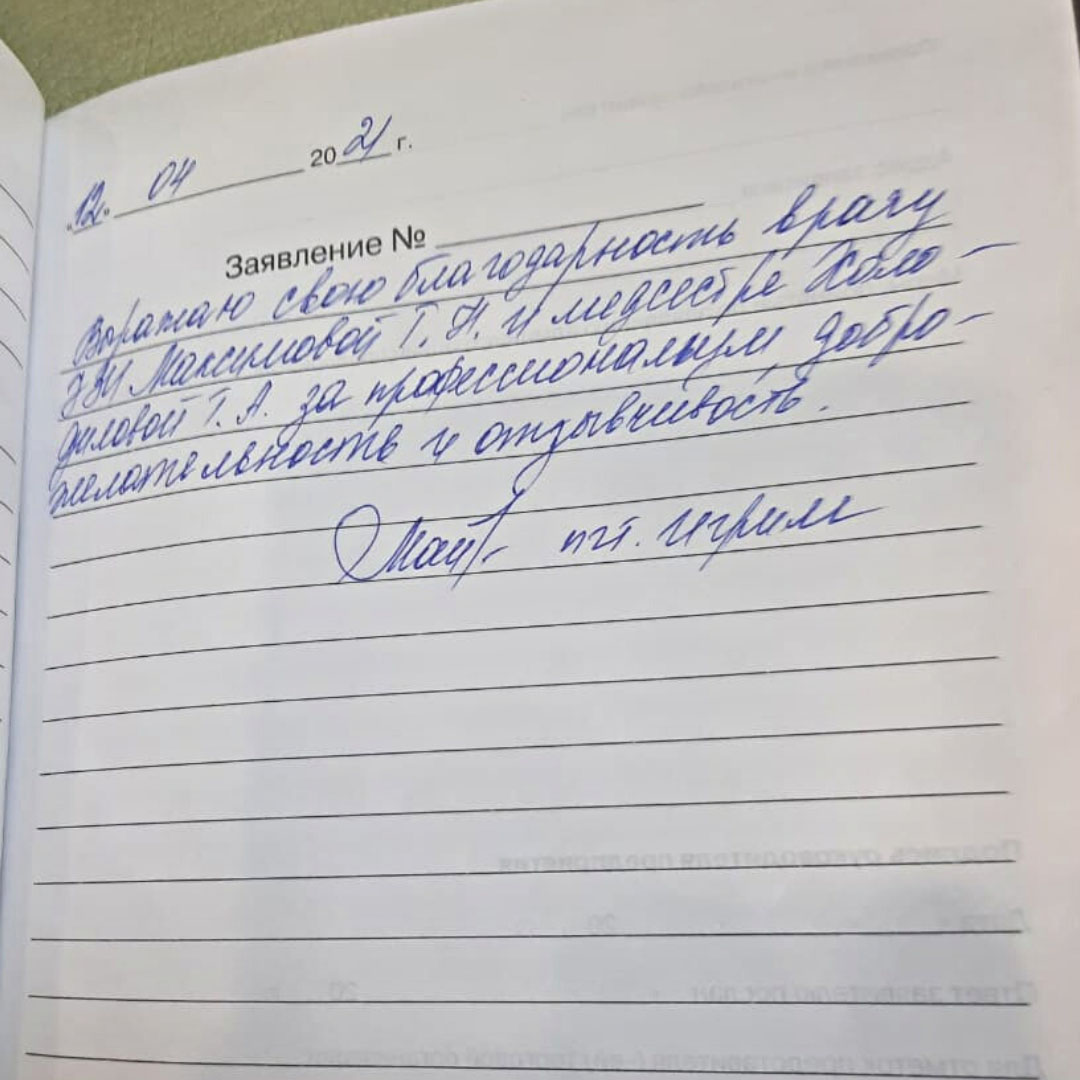 "12" 04 2021 г.
Заявление №
Выражаю свою благодарность врачу
УЗИ Максимовой Т. Н. и медсестре Холо-
диловой Т. А. за профессионализм, добро-
желательность и отзывчивость.
пгт. Игрим